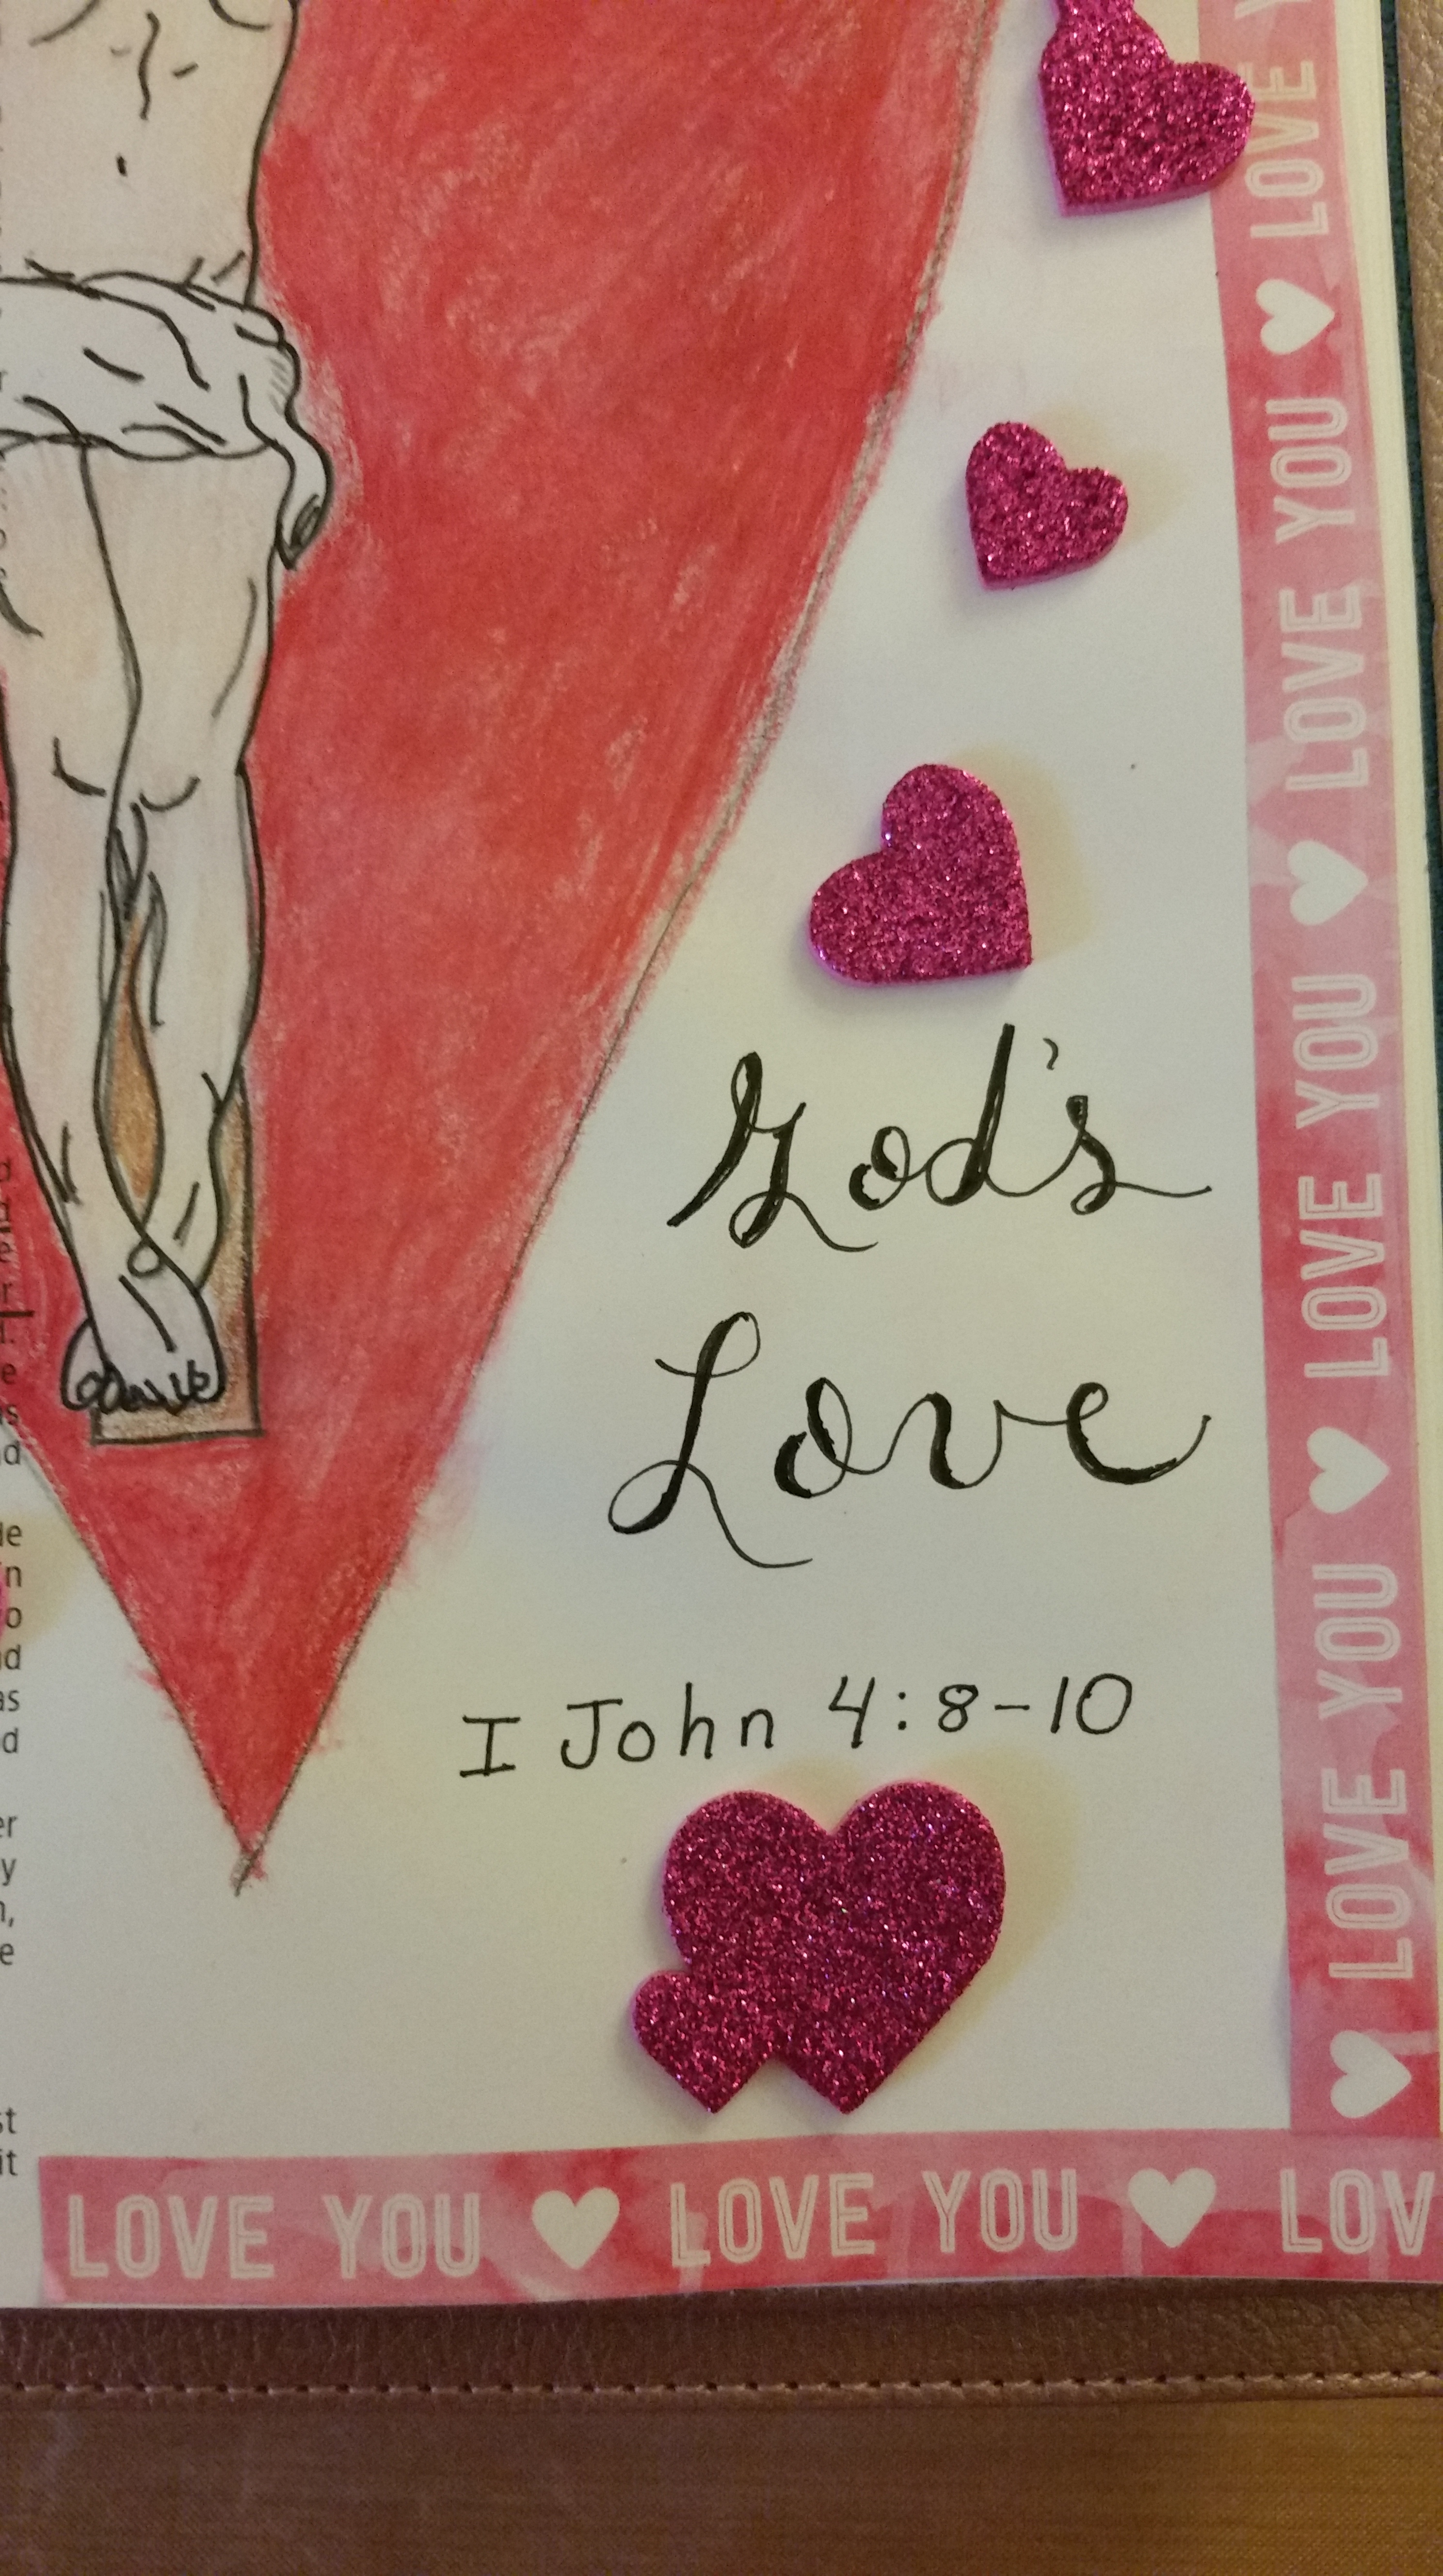 God's
Love
I John 4:8-10
LOVE YOU ♥ LOVE YOU ♥ LOVE YOU ♥ LOVE
LOVE YOU ♥ LOVE YOU ♥ LOV